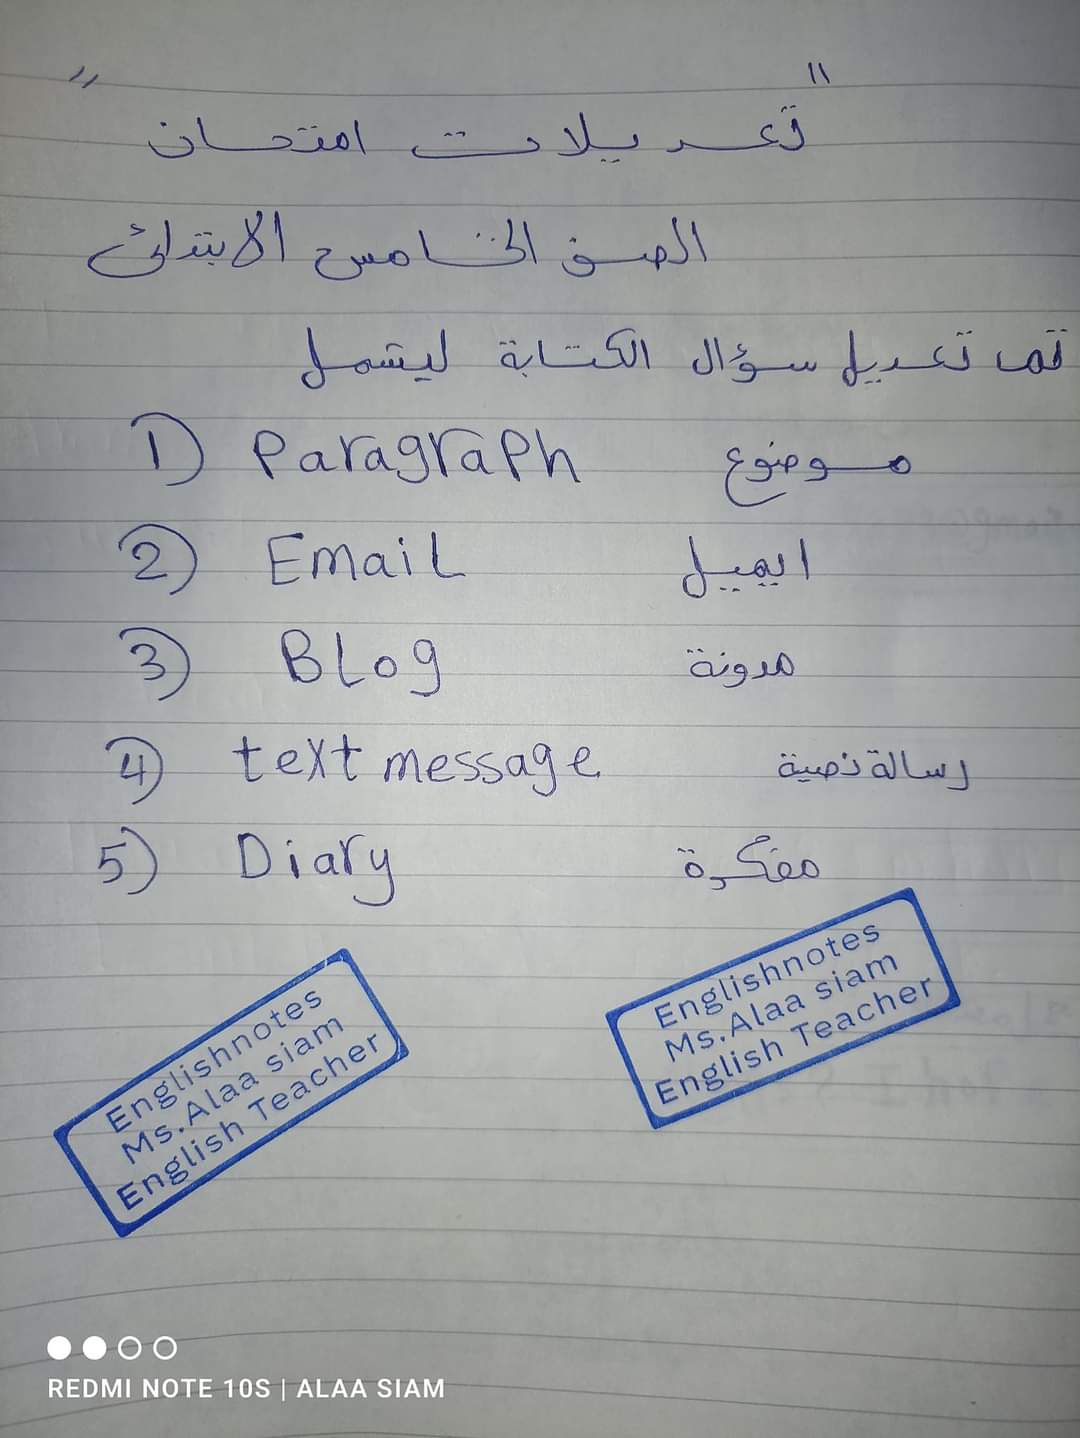 " تعديلات امتحان "
الصف الخامس الابتدائى
تم تعديل سؤال الكتابة ليشمل
1) Paragraph موضوع
2) Email ايميل
3) Blog مدونة
4) text message رسالة نصية
5) Diary مفكرة
Englishnotes
Ms.Alaa siam
English Teacher
Englishnotes
Ms.Alaa siam
English Teacher
REDMI NOTE 10S | ALAA SIAM